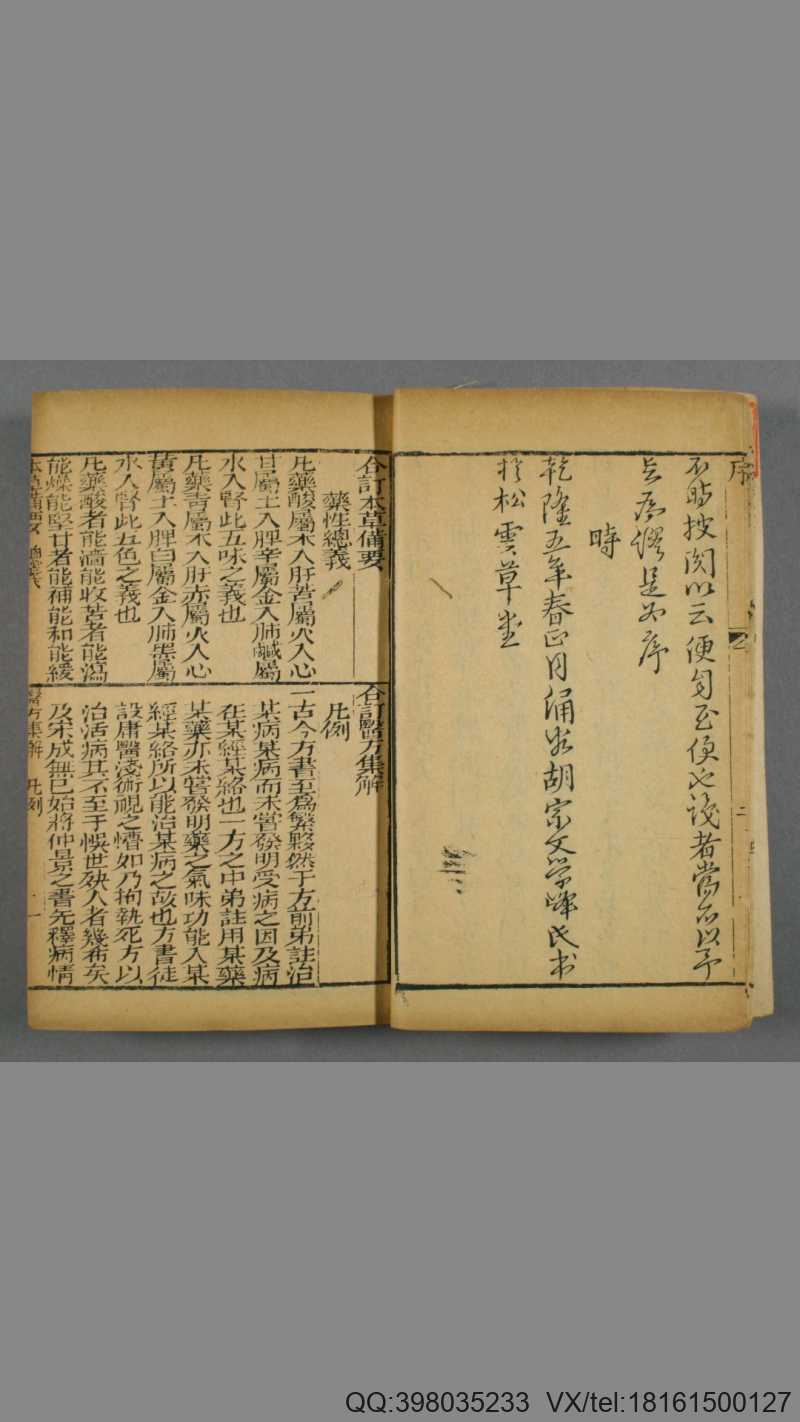 序
不時披閱以云便自至便也識者當不以予
為謬是为序
時
乾隆五年春正月浦城胡宗文學峰氏书
於松雲草堂
合訂本草備要
藥性總義
凡藥酸屬木入肝苦屬火入心
甘屬土入脾辛屬金入肺鹹屬
水入腎此五味之義也
凡藥青屬木入肝赤屬火入心
黃屬土入脾白屬金入肺黑屬
水入腎此五色之義也
凡藥酸者能濇能收苦者能瀉
能燥能堅甘者能補能和能緩
本草備要 總義
合訂醫方集解
凡例
一古今方書至爲繁夥然于方前弟註治
某病某病而未嘗發明受病之因及病
在某經某絡也一方之中弟註用某藥
某藥亦未嘗發明藥之氣味功能入某
經某絡所以能治某病之故也方書徒
設庸醫淺術視之懵如乃拘執死方以
治活病其不至于悞世殃人者幾希矣
及宋成無已始將仲景之書先釋病情
醫方集解 凡例 一
QQ:398035233 VX/tel:18161500127